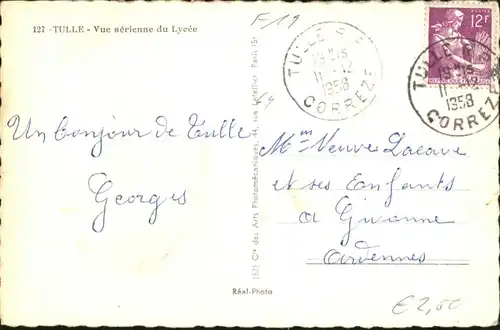 127 - TULLE - Vue aérienne du Lycée
F 19
TULLE R.P.
11-12
1958
CORREZE
POSTES
12F
TULLE R.P.
1958
CORREZE
Un bonjour de Tulle
Georges
Mme Veuve Lacave
et ses Enfants
a Givonne
Ardennes
(57) Cie des Arts Photomécaniques, 44, rue Letellier, Paris 15e
Réal-Photo
€ 2,50